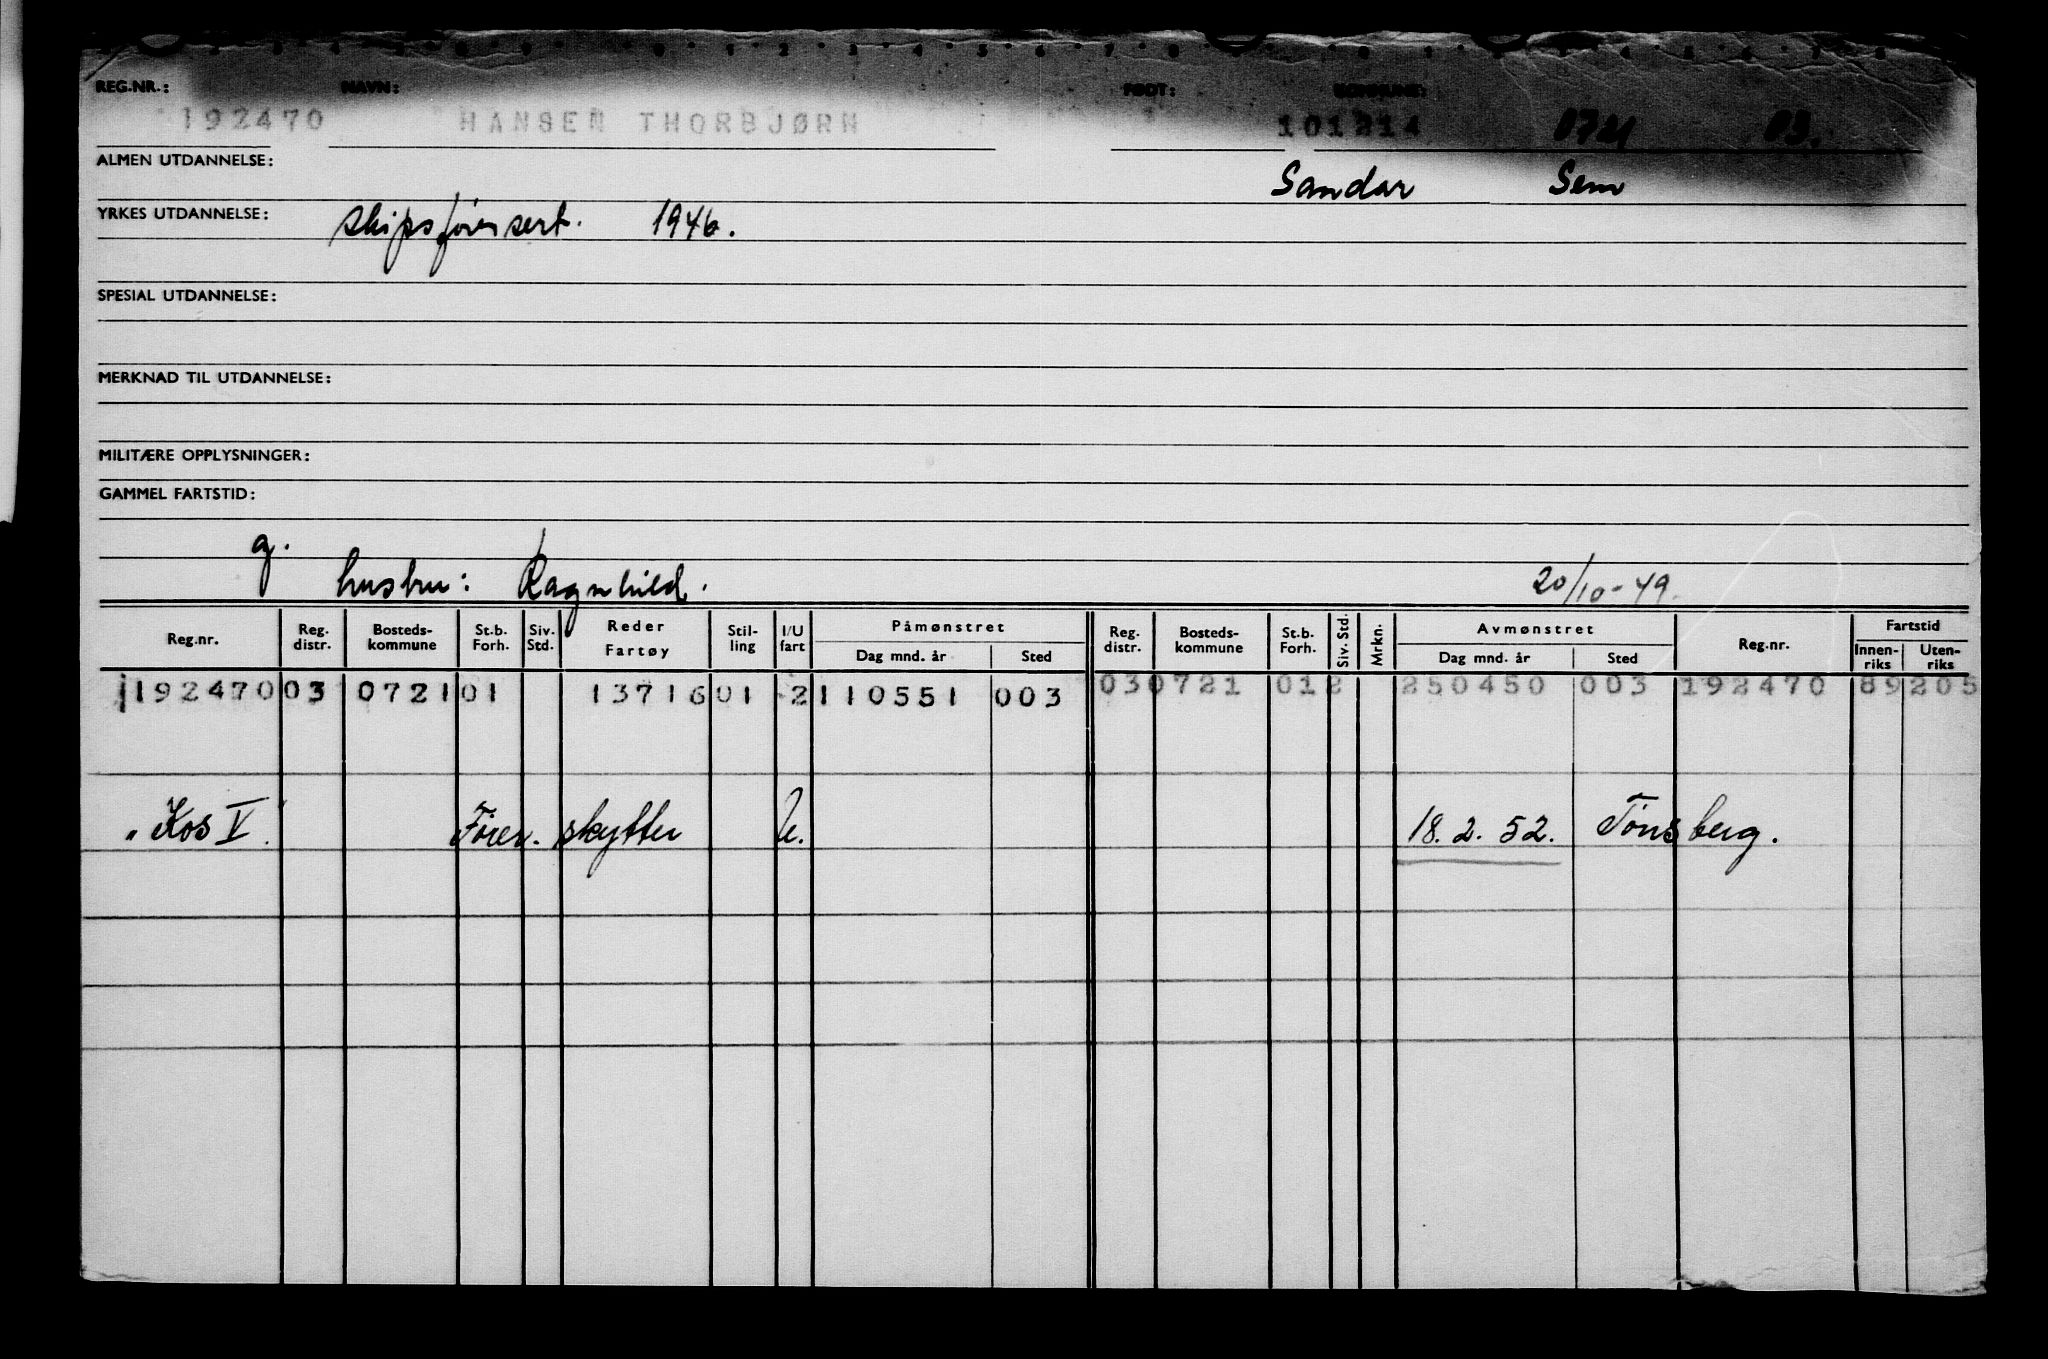 REG.NR.: NAVN: FØDT: KOMMUNE:
192470 HANSEN THORBJØRN 101214 0721 03.
ALMEN UTDANNELSE: Sandar Sem
YRKES UTDANNELSE: skipsførersert. 1946.
SPESIAL UTDANNELSE:
MERKNAD TIL UTDANNELSE:
MILITÆRE OPPLYSNINGER:
GAMMEL FARTSTID:
g.
hustru: Ragnhild. 20/10-49.
Reg.nr. Reg. distr. Bosteds- kommune St.b. Forh. Siv. Std. Reder Fartøy Stil- ling I/U fart Påmønstret Dag mnd. år Sted Reg. distr. Bosteds- kommune St.b. Forh. Siv. Std. Mrkn. Avmønstret Dag mnd. år Sted Reg.nr. Fartstid Innen- riks Uten- riks
192470 03 0721 01 13716 01 2 110551 003 03 0721 012 250450 003 192470 89 205
"Kos V". Fører. skytter U. 18.2.52. Tønsberg.